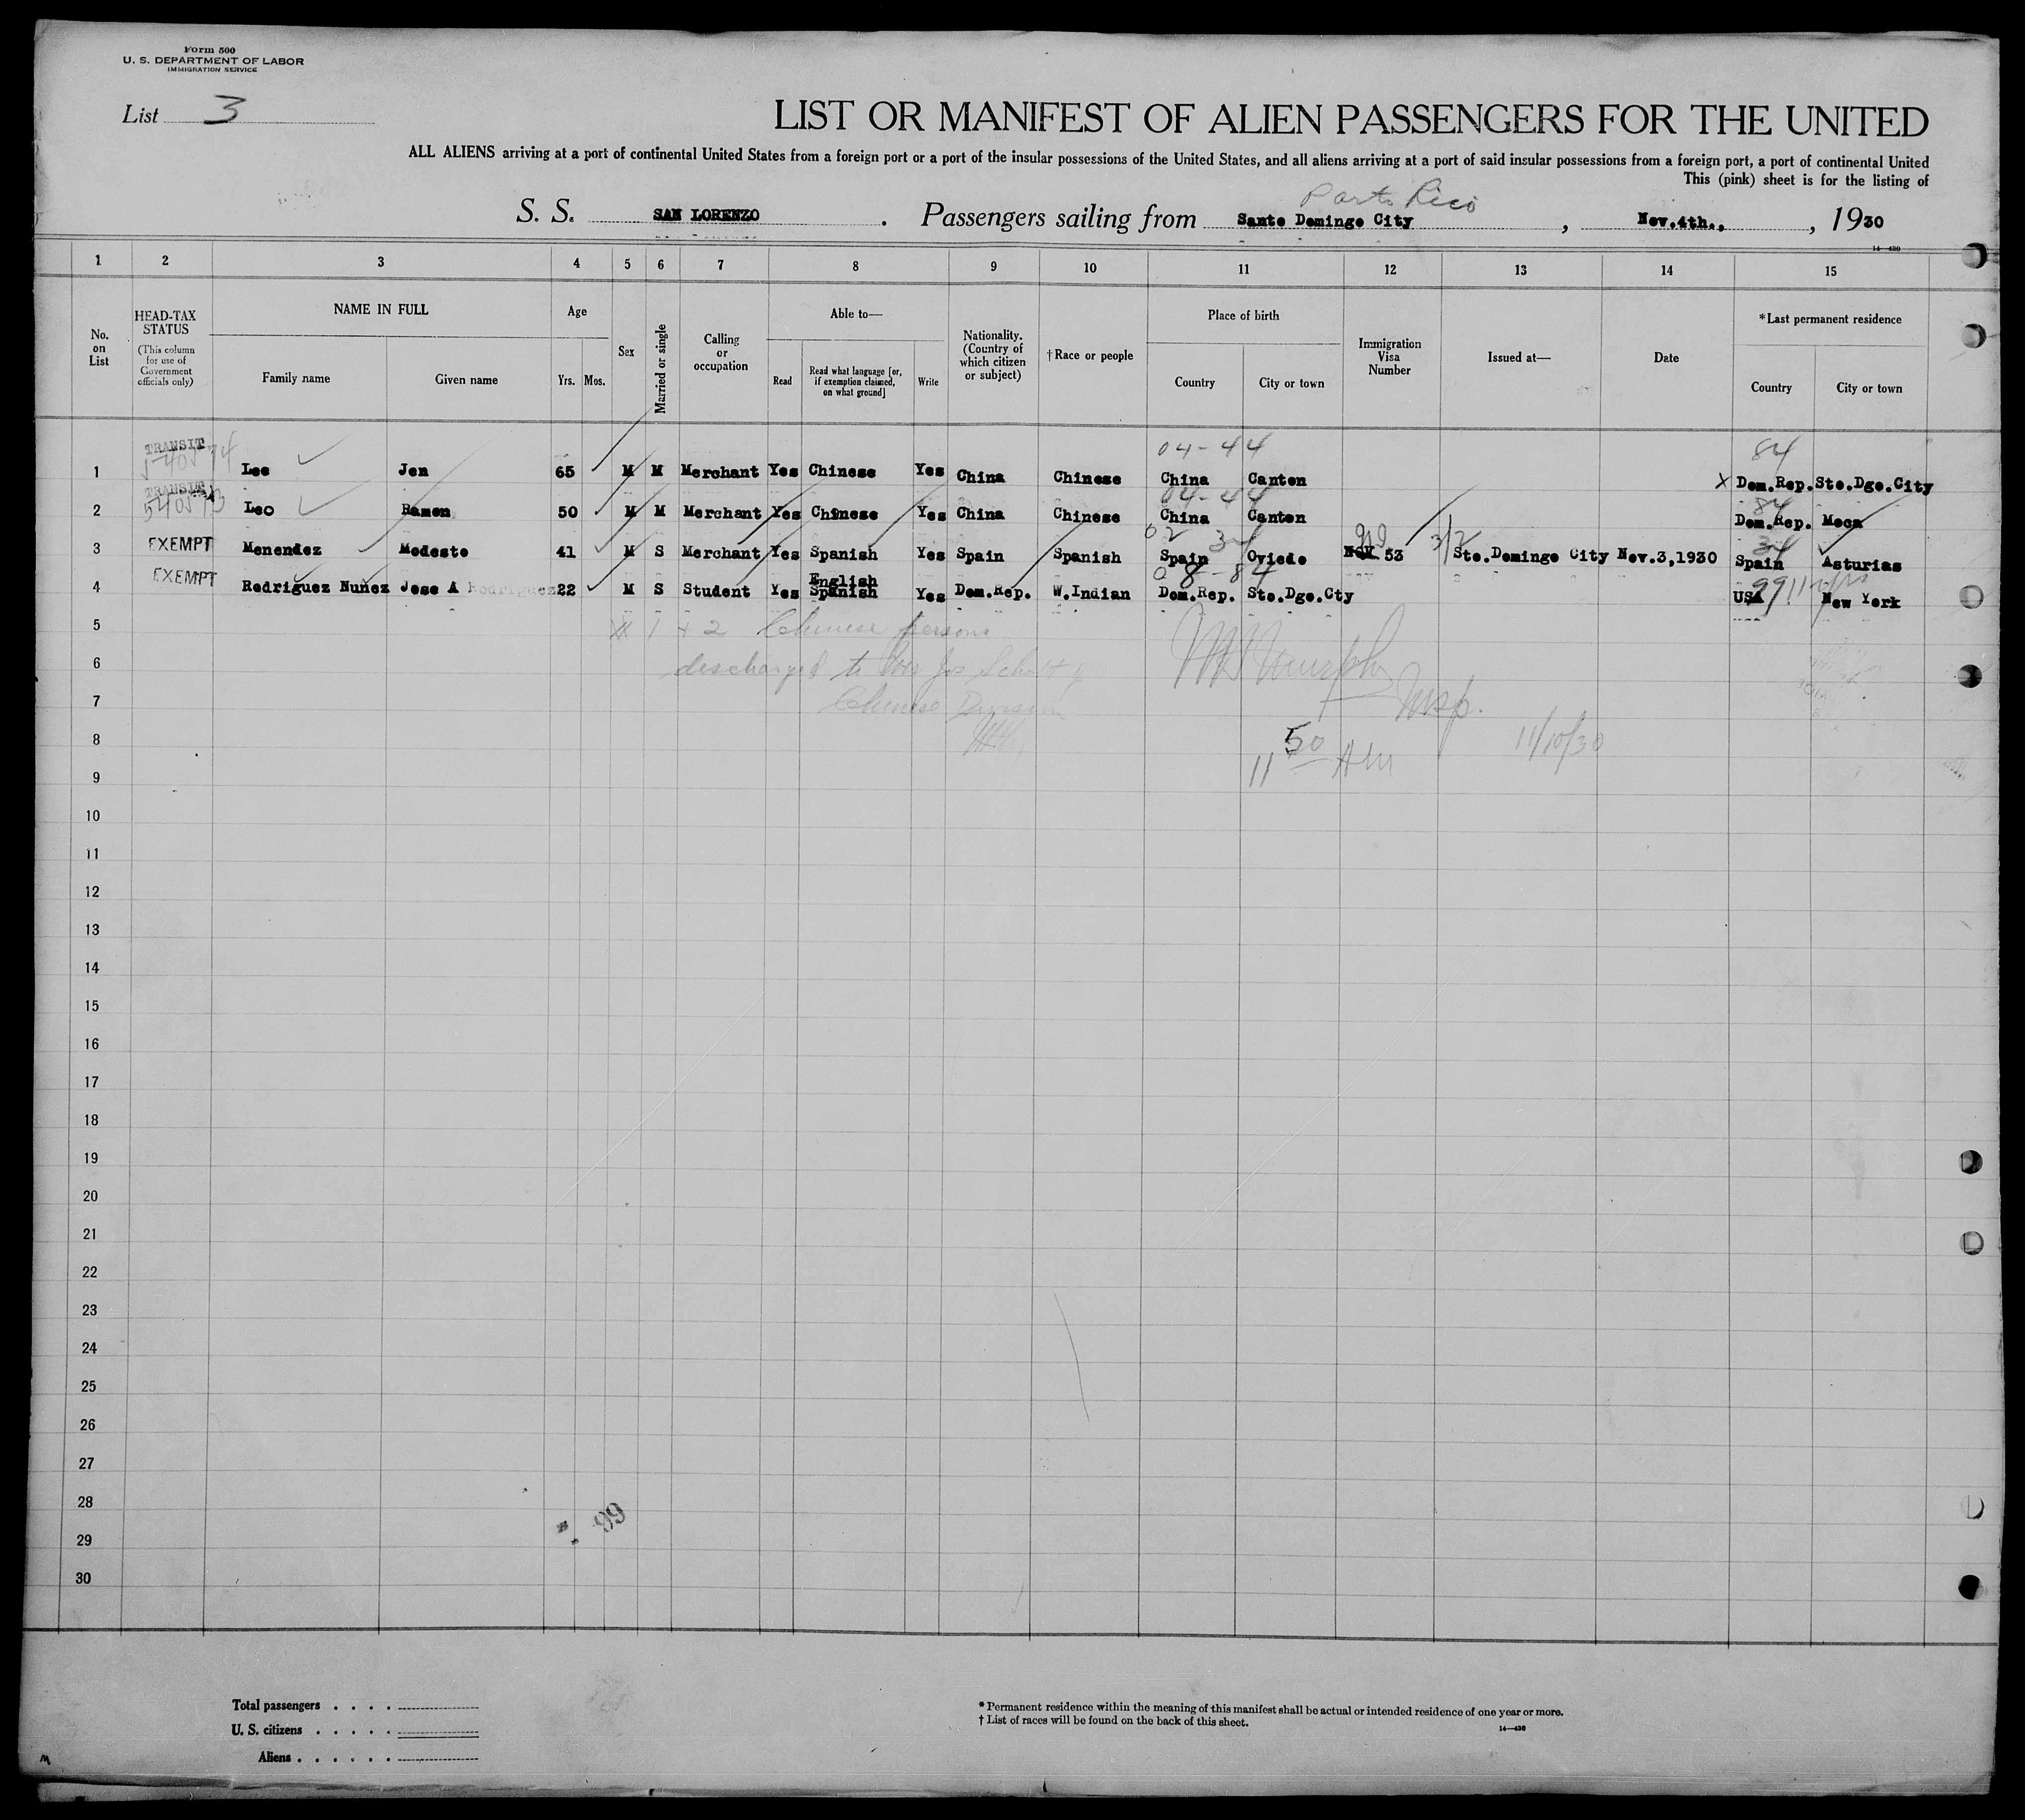 Form 500
U. S. DEPARTMENT OF LABOR
IMMIGRATION SERVICE
List 3
LIST OR MANIFEST OF ALIEN PASSENGERS FOR THE UNITED
ALL ALIENS arriving at a port of continental United States from a foreign port or a port of the insular possessions of the United States, and all aliens arriving at a port of said insular possessions from a foreign port, a port of continental United
This (pink) sheet is for the listing of
Porto Rico
S. S. SAN LORENZO. Passengers sailing from Santo Domingo City, Nov.4th., , 1930
14—430
1 2 3 4 5 6 7 8 9 10 11 12 13 14 15
No. on List
HEAD-TAX STATUS
(This column for use of Government officials only)
NAME IN FULL
Family name
Given name
Age
Yrs. Mos.
Sex
Married or single
Calling or occupation
Able to—
Read
Read what language [or, if exemption claimed, on what ground]
Write
Nationality. (Country of which citizen or subject)
†Race or people
Place of birth
Country
City or town
Immigration Visa Number
Issued at—
Date
*Last permanent residence
Country
City or town
04-44 84
1 TRANSIT Lee Jen 65 M M Merchant Yes Chinese Yes China Chinese China Canton X Dom.Rep. Sto.Dgo.City
04-44 84
2 TRANSIT Leo Ramon 50 M M Merchant Yes Chinese Yes China Chinese China Canton Dom.Rep. Moca
02 34 34
3 EXEMPT Menendez Modesto 41 M S Merchant Yes Spanish Yes Spain Spanish Spain Oviedo 53 Sto.Domingo City Nov.3,1930 Spain Asturias
08-84 99
4 EXEMPT Rodriguez Nuñez Jose A Rodriguez 22 M S Student Yes English Spanish Yes Dom.Rep. W.Indian Dom.Rep. Sto.Dgo.Cty USA New York
5 1 + 2 Chinese persons
6 discharged to Jos
7 Chinese Division Insp.
8 11 50 AM 11/10/30
9
10
11
12
13
14
15
16
17
18
19
20
21
22
23
24
25
26
27
28
29
30
99
Total passengers . . . .
U. S. citizens . . . . .
Aliens . . . . . .
* Permanent residence within the meaning of this manifest shall be actual or intended residence of one year or more.
† List of races will be found on the back of this sheet.
14—430